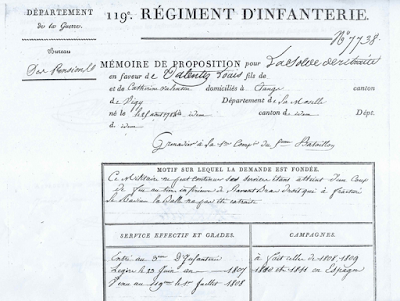 DÉPARTEMENT
de la Guerre.
119e. RÉGIMENT D'INFANTERIE.
No. 7738.
Bureau
Des Pensions
MÉMOIRE DE PROPOSITION pour La Solde de retraite
en faveur de Valentin Louis fils de
et de Catherine domicilié à canton
de Vigy Département de la Moselle
né le idem canton de idem Dépt.
d idem
Grenadier à la Comp. du Bataillon
MOTIF SUR LEQUEL LA DEMANDE EST FONDÉE.
Ce Militaire ne peut continuer ses services étant atteint d'un Coup
De feu au tiers inférieur de l'avant Bras droit qui a fracturé
le la Balle n'a pas été extraite
SERVICE EFFECTIF ET GRADES.
CAMPAGNES.
Entré au d'Infanterie
Légère le 23 Juin an 1807
Venu au régt. le 1er Juillet 1808
à fait celles de 1808. 1809
1810 et 1811 en Espagne